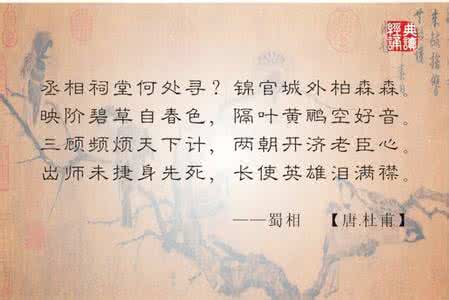 经典
诵谭
丞相祠堂何处寻？锦官城外柏森森。
映阶碧草自春色，隔叶黄鹂空好音。
三顾频烦天下计，两朝开济老臣心。
出师未捷身先死，长使英雄泪满襟。
——蜀相 【唐.杜甫】